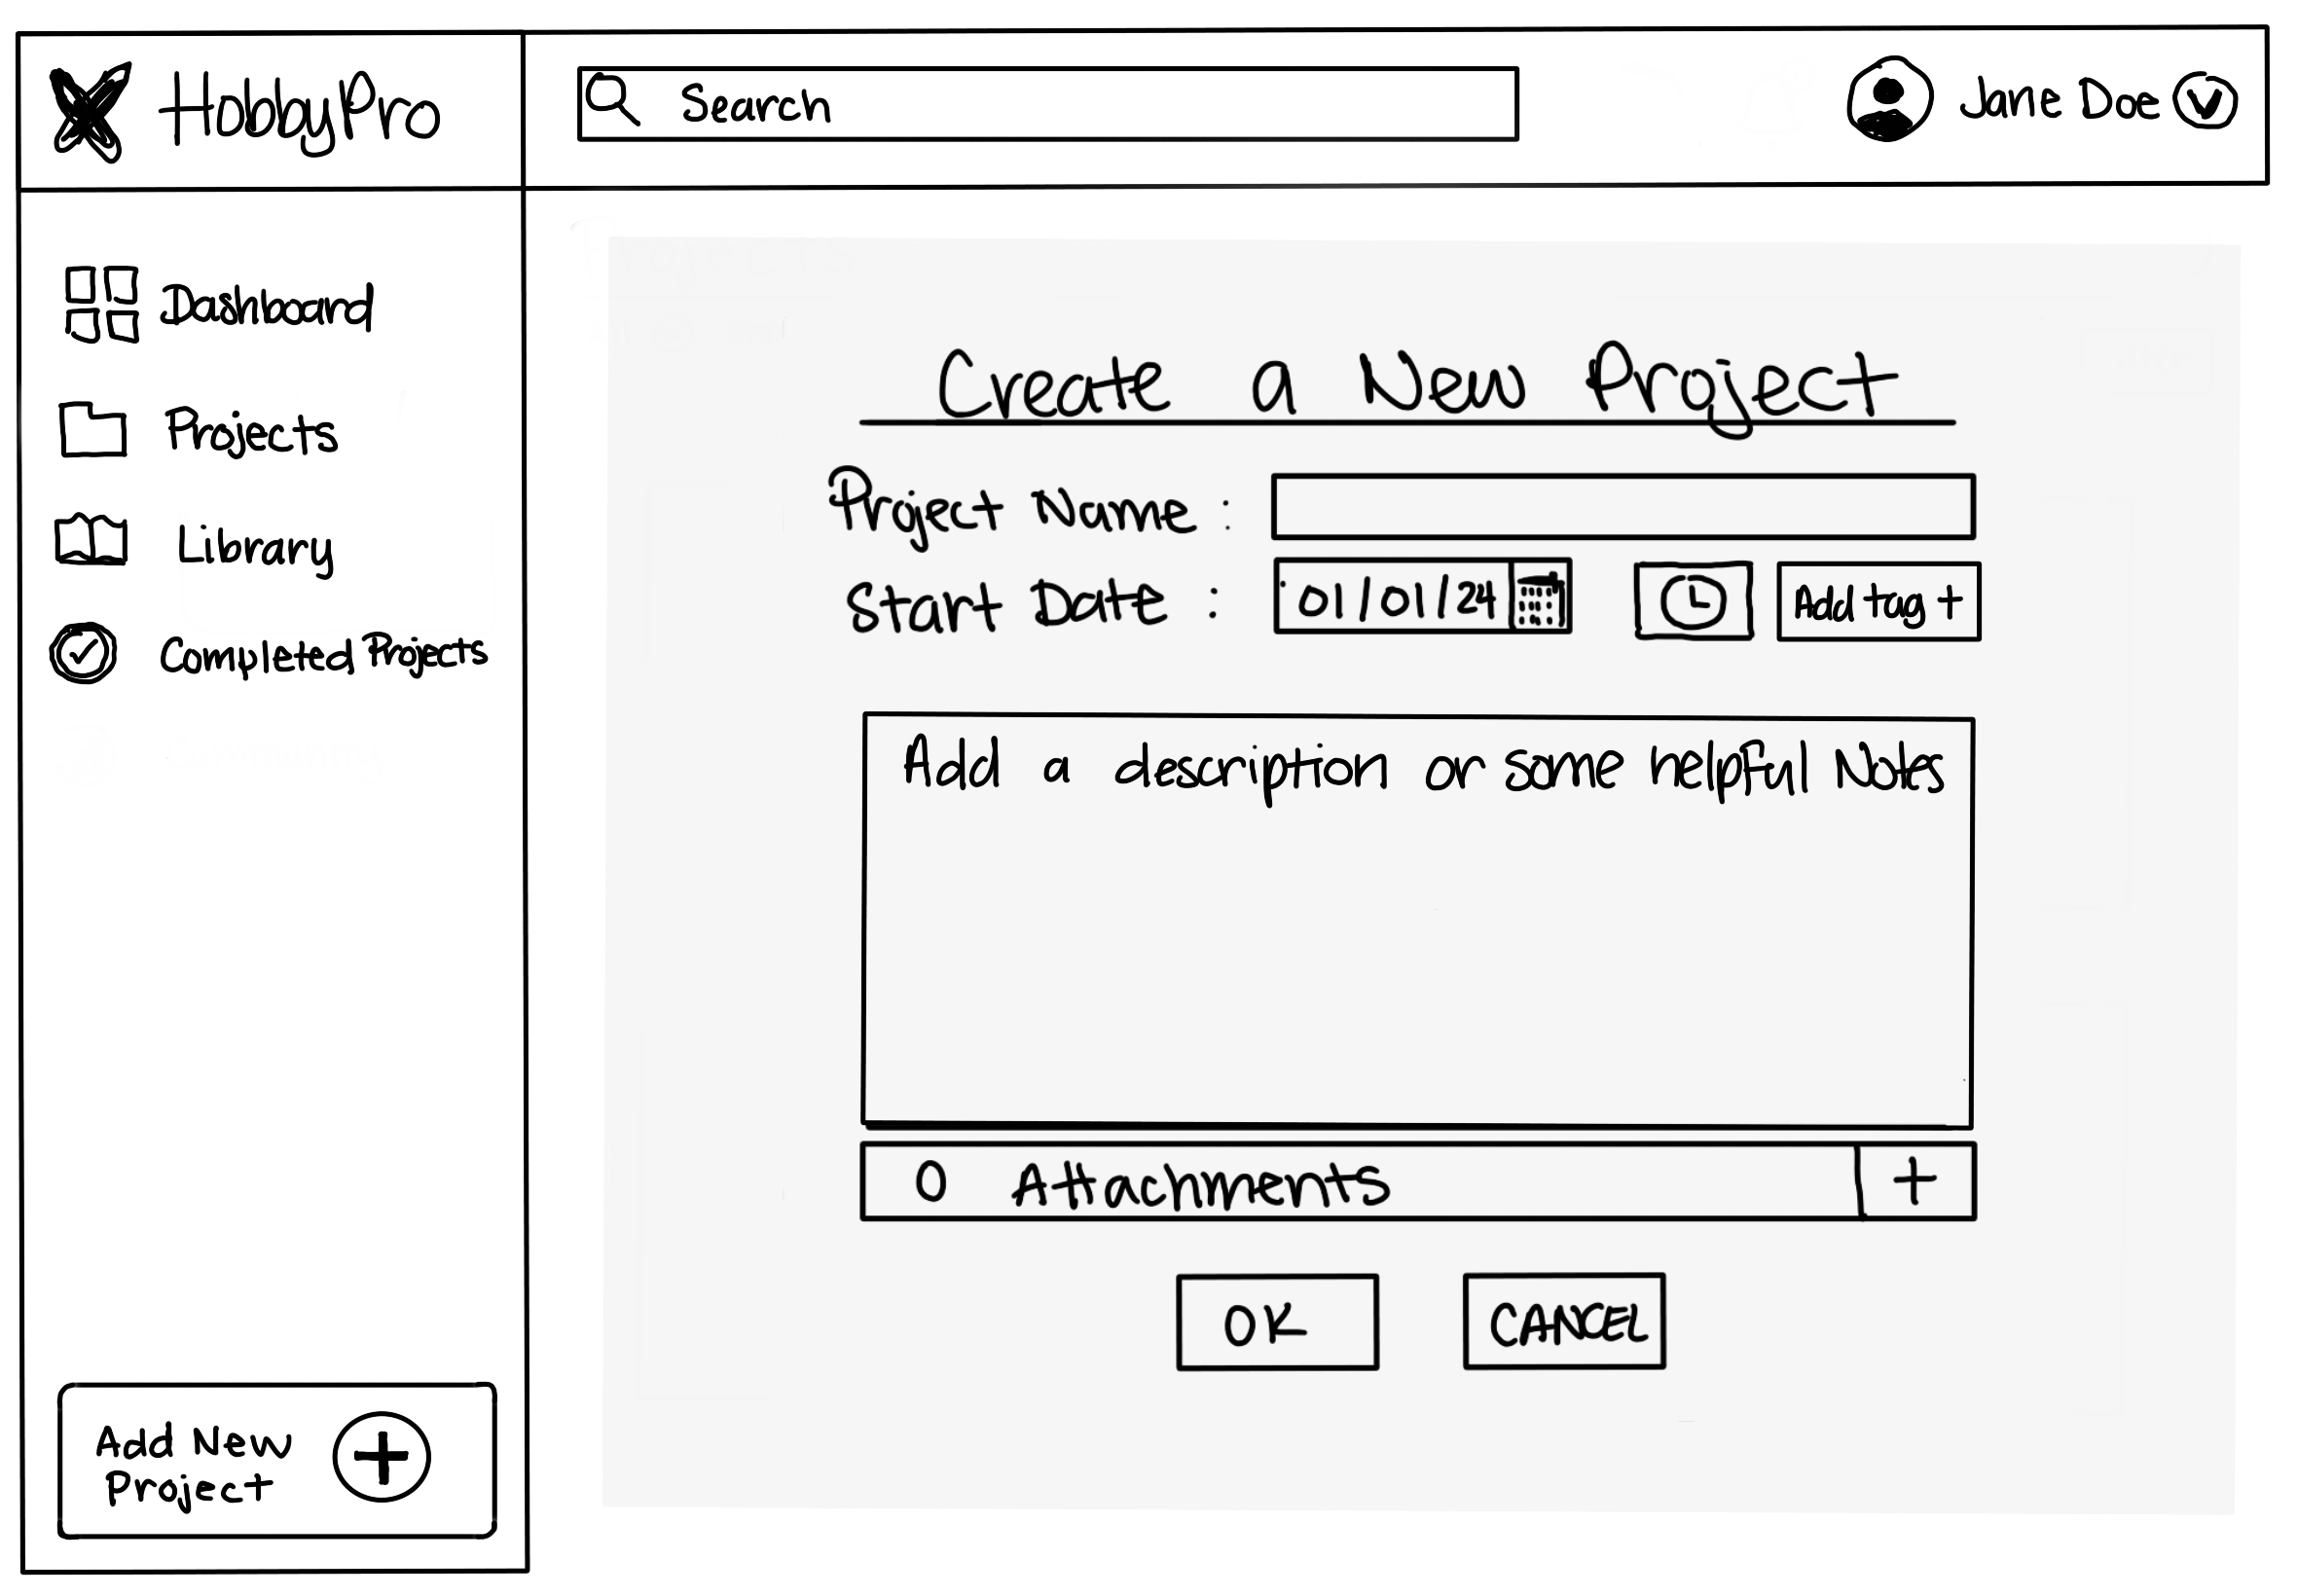 HobbyPro
Search
Jane Doe
Dashboard
Projects
Library
Completed Projects
Add New
Project
Create a New Project
Project Name :
Start Date : 01/01/24
Add tag +
Add a description or some helpful Notes
0 Attachments +
OK
CANCEL